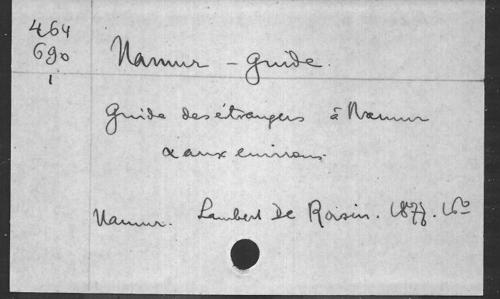 464
690
1
Namur - Guide.
Guide des étrangers à Namur
& aux environs.
Namur. Lambert De Roisin. 16º